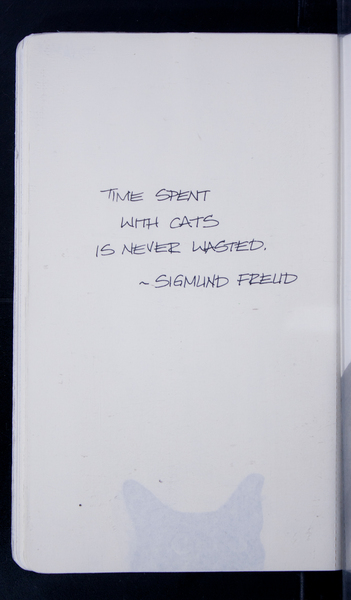 TIME SPENT
WITH CATS
IS NEVER WASTED.
~ SIGMUND FREUD